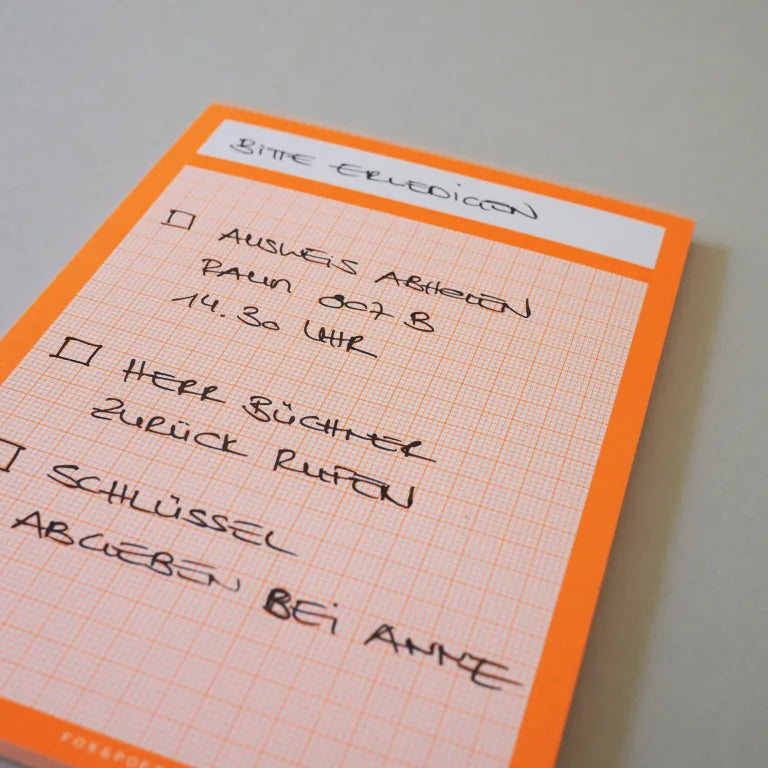 BITTE ERLEDIGEN
AUSWEIS ABHOLEN
RAUM 807 B
14.30 UHR
HERR BÜCHNER
ZURÜCK RUFEN
SCHLÜSSEL
ABGEBEN BEI ANNE